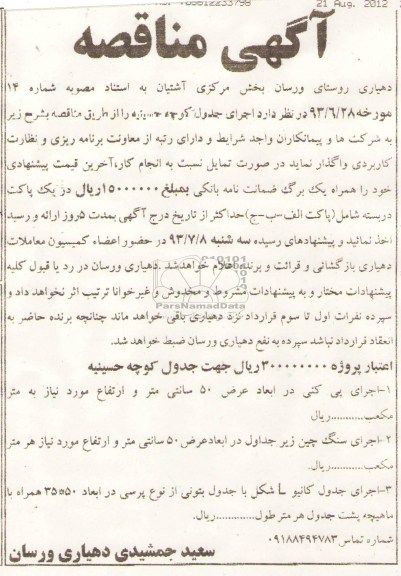 21 Aug. 2012
آگهی مناقصه
دهیاری روستای ورسان بخش مرکزی آشتیان به استناد مصوبه شماره ۱۴
مورخه ۹۳/۶/۲۸ در نظر دارد اجرای جدول کوچه حسینیه را از طریق مناقصه بشرح زیر
به شرکت ها و پیمانکاران واجد شرایط و دارای رتبه از معاونت برنامه ریزی و نظارت
کاربردی واگذار نماید در صورت تمایل نسبت به انجام کار،آخرین قیمت پیشنهادی
خود را همراه یک برگ ضمانت نامه بانکی بمبلغ ۱۵۰۰۰۰۰۰ ریال در یک پاکت
دربسته شامل (پاکت الف-ب-ج) حداکثر از تاریخ درج آگهی بمدت ۵ روز ارائه و رسید
اخذ نمائید و پیشنهادهای رسیده سه شنبه ۹۳/۷/۸ در حضور اعضاء کمیسیون معاملات
دهیاری بازگشائی و قرائت و برنده اعلام خواهد شد .دهیاری ورسان در رد یا قبول کلیه
پیشنهادات مختار و به پیشنهادات مشروط و مخدوش و غیرخوانا ترتیب اثر نخواهد داد و
سپرده نفرات اول تا سوم قرارداد نزد دهیاری باقی خواهد ماند چنانچه برنده حاضر به
انعقاد قرارداد نباشد سپرده به نفع دهیاری ورسان ضبط خواهد شد.
ParsNamadData
اعتبار پروژه ۳۰۰۰۰۰۰۰۰ ریال جهت جدول کوچه حسینیه
۱-اجرای پی کنی در ابعاد عرض ۵۰ سانتی متر و ارتفاع مورد نیاز به متر
مکعب...........ریال
۲-اجرای سنگ چین زیر جداول در ابعاد عرض ۵۰ سانتی متر و ارتفاع مورد نیاز هر متر
مکعب...........ریال.
۳-اجرای جدول کانیو L شکل با جدول بتونی از نوع پرسی در ابعاد ۵۰*۳۵ همراه با
ماهیچه پشت جدول هر متر طول............ریال.
شماره تماس ۰۹۱۸۸۴۹۴۷۸۳
سعید جمشیدی دهیاری ورسان